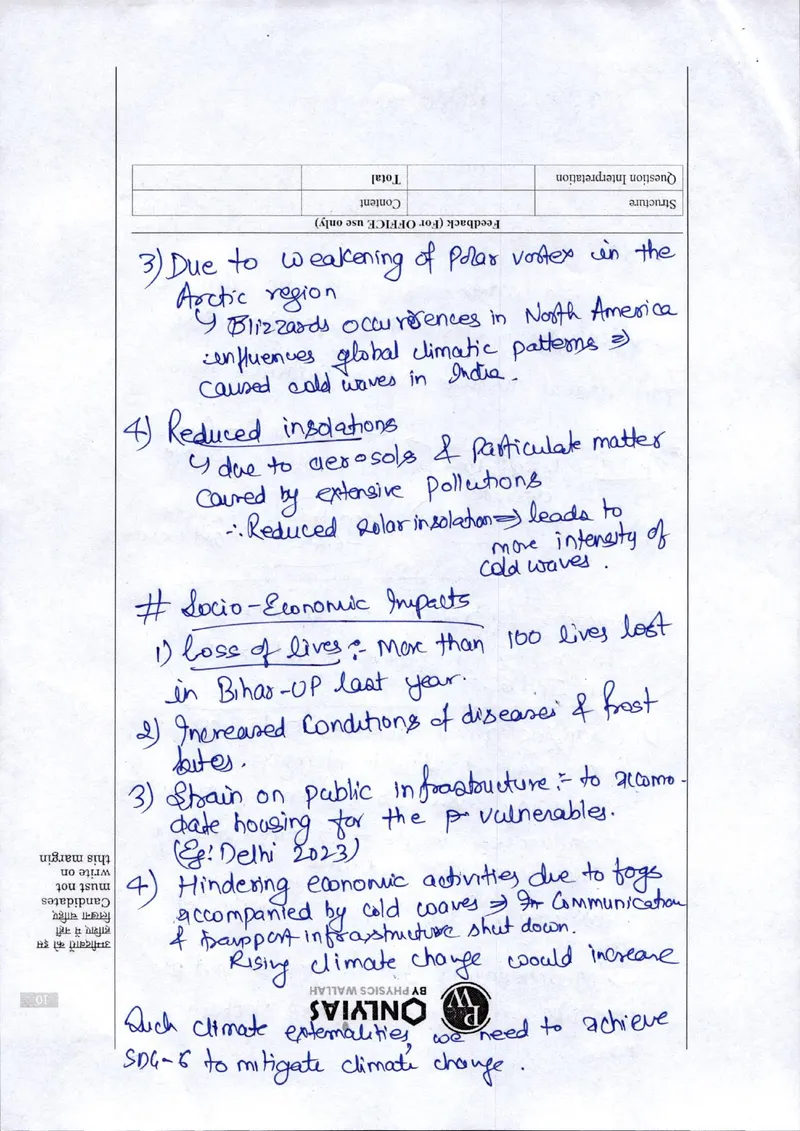 Question Interpretation
Total
Structure
Content
Feedback (For OFFICE use only)
3) Due to weakening of Polar vortex in the
Arctic region
↳ Blizzards occurrences in North America
influences global climatic patterns ⇒
caused cold waves in India.
4) Reduced insolations
↳ due to aerosols & particulate matter
caused by extensive Pollutions
∴ Reduced solar insolation ⇒ leads to
more intensity of
cold waves.
# Socio-Economic Impacts
1) Loss of lives :- More than 100 lives lost
in Bihar-UP last year.
2) Increased Conditions of diseases & frost
bites.
3) Strain on public infrastructure :- to accomo-
date housing for the vulnerables.
(Eg: Delhi 2023)
4) Hindering economic activities due to fogs
accompanied by cold waves ⇒ Communication
& transport infrastructure shut down.
Rising climate change would increase
Such climate externalities, we need to achieve
SDG-6 to mitigate climate change.
उम्मीदवारों को इस
हाशिए में नहीं
लिखना चाहिए
Candidates
must not
write on
this margin
10
PW
ONLYIAS
BY PHYSICS WALLAH